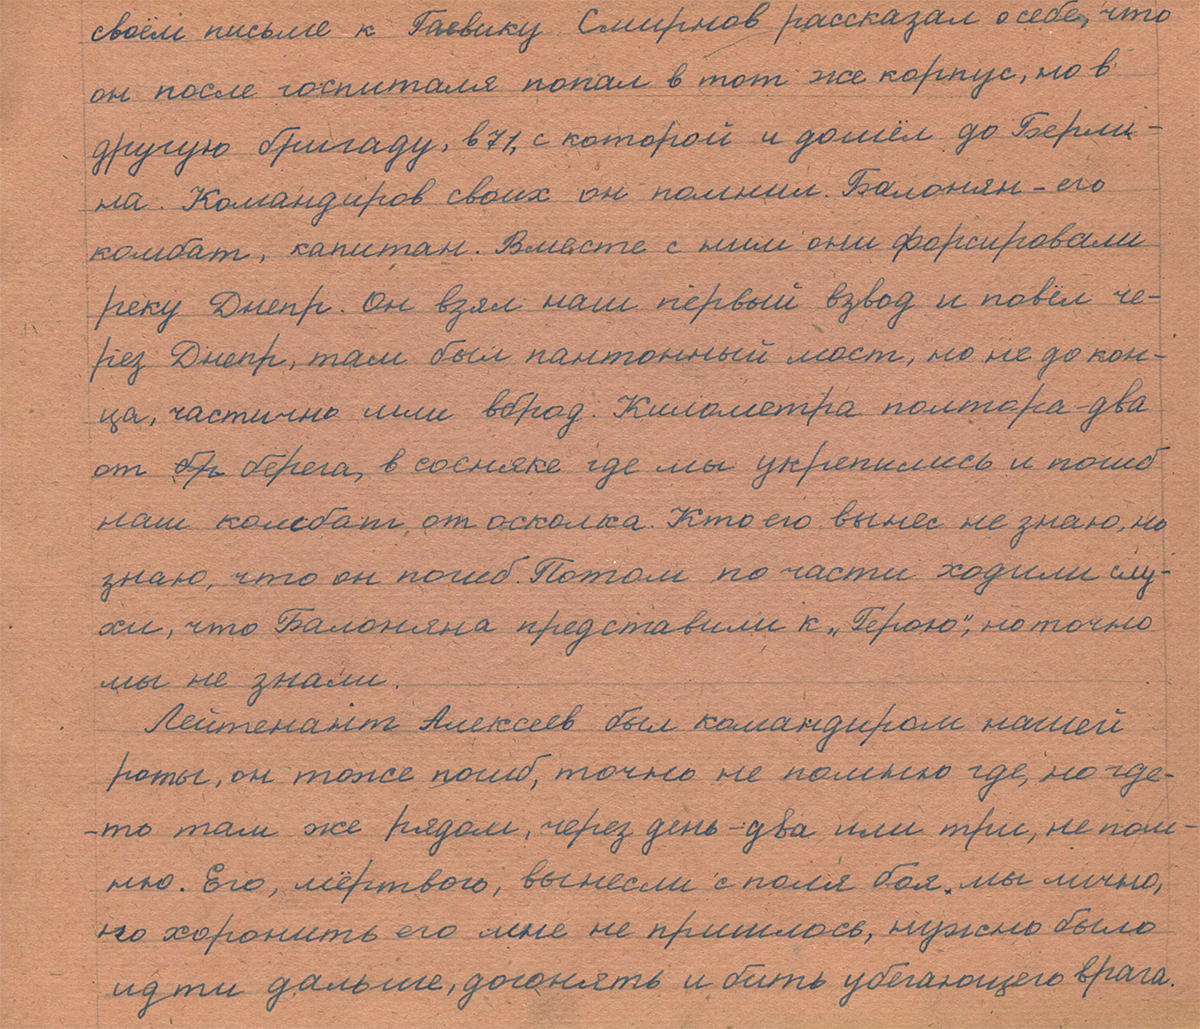 своём письме к Гаевику Смирнов рассказал о себе, что
он после госпиталя попал в тот же корпус, но в
другую бригаду, в 71, с которой и дошёл до Берли-
на. Командиров своих он помнил. Балонян – его
комбат, капитан. Вместе с ним они форсировали
реку Днепр. Он взял наш первый взвод и повёл че-
рез Днепр, там был пантонный мост, но не до кон-
ца, частично шли вброд. Километра полтора-два
от берега, в сосняке где мы укрепились и погиб
наш комбат, от осколка. Кто его вынес не знаю, но
знаю, что он погиб. Потом по части ходили слу-
хи, что Балоняна представили к „Герою“, но точно
мы не знали.
Лейтенант Алексеев был командиром нашей
роты, он тоже погиб, точно не помню где, но где-
-то там же рядом, через день-два или три, не пом-
ню. Его, мёртвого, вынесли с поля боя, мы лично,
но хоронить его мне не пришлось, нужно было
идти дальше, догонять и бить убегающего врага.